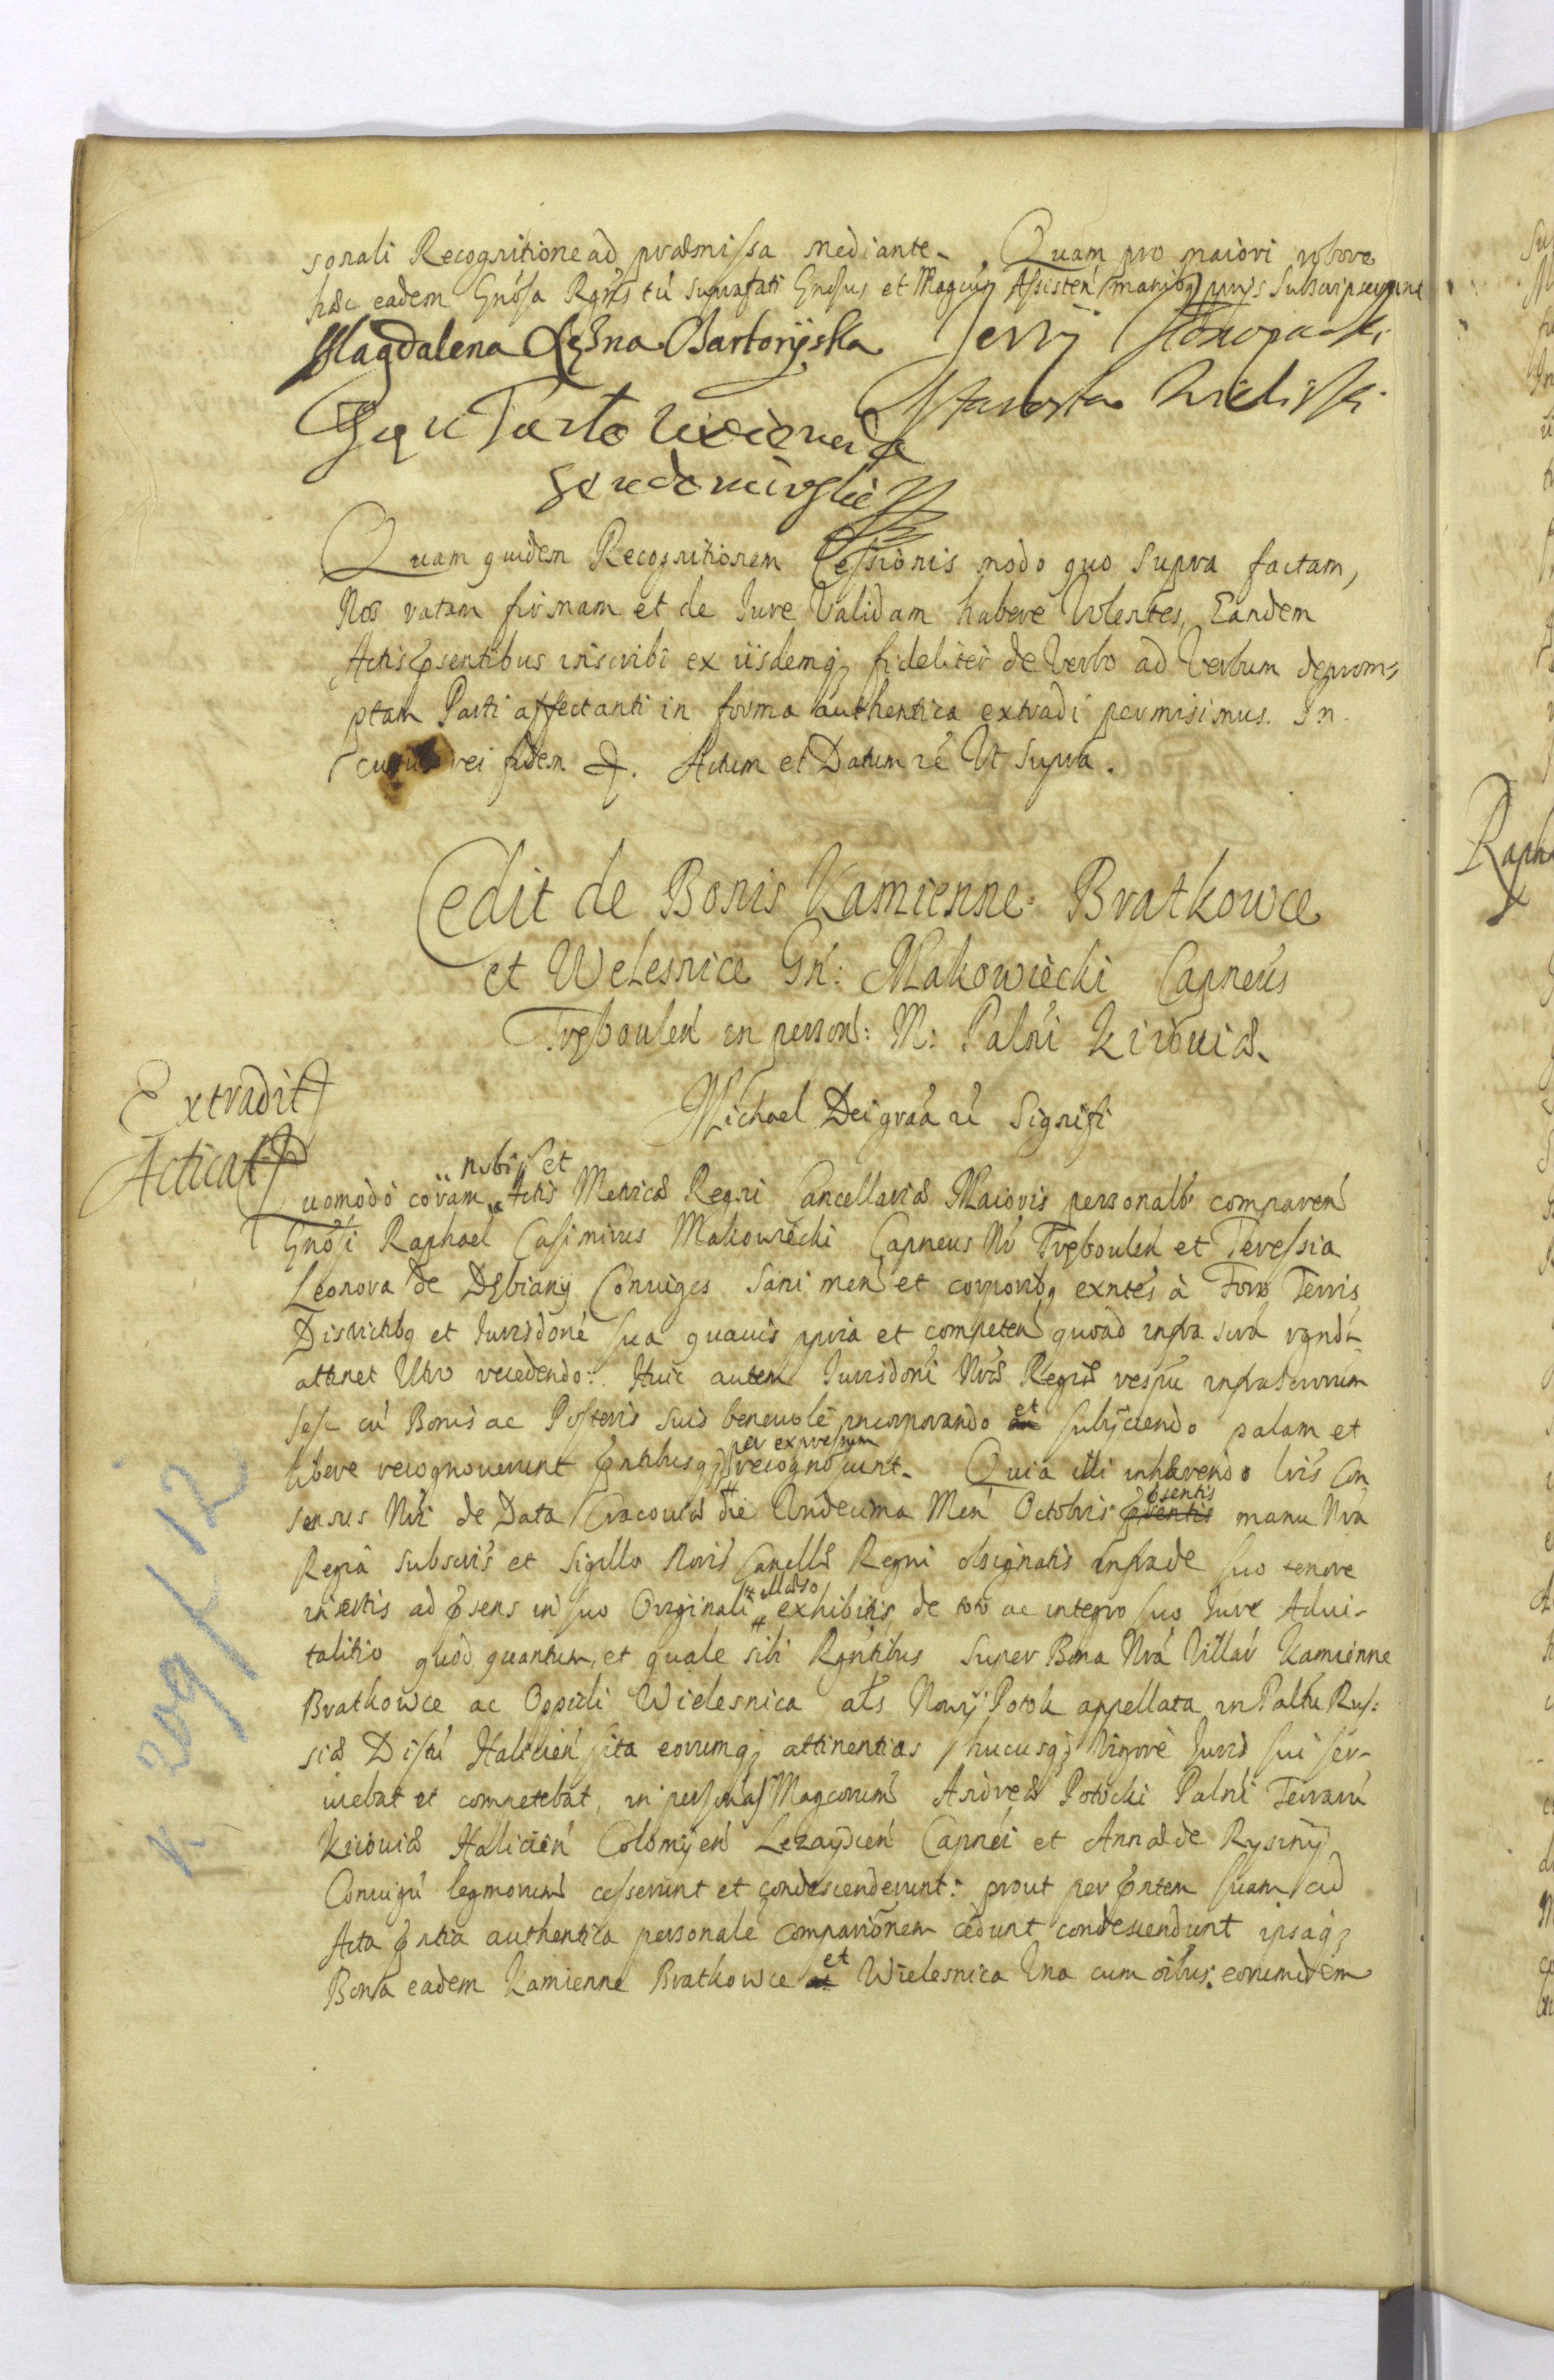 sonali Recognitione ad præmissa mediante. Quam pro maiori robore
hæc eadem Gnosa Rgns tū suprafati Gnosus et Magcus Assisten manibq prijs subscripserunt
Magdalena Bartoryska Jerzy Słoxopaski
Starosta
Quam quidem Recognitionem Cessionis modo quo supra factam,
Nos ratam firmam et de Jure Validam habere Volentes, Eandem
Actis psentibus inscribi ex iisdemq fideliter de Verbo ad Verbum deprom-
ptam Parti affectanti in forma authentica extradi permisimus. In
cuius rei fidem. Actum et Datum re Ut supra.
Cedit de Bonis Kamienne: Bratkowce
et Welesnice Gn: Makowiecki Capneus
Tręboulen in person: M: Palni Kiiouiæ
Michael Dei graa re Signifi
Extradit
Acticat
Quomodo coram nobis et Actis Metricæ Regni Cancellariæ Maioris personalr comparen
Gnosi Raphael Casimirus Makowiecki Capneus Nr Tręboulen et Teressia
Leonora de Dębiany Coniuges sani men et corporibq exntes à Foro Terris
Districtibq et Jurisdone sua quauis ppria et competen quoad infra scra rgnda
attinet Utro recedendo. Huic autem Jurisdoni Nræ Regiæ respu infrascrorum
sese cu Bonis ac Posteris suis beneuole incorporando et subijciendo palam et
libere recognouerunt pntibusq per expressum recognoscunt. Quia illi inhærendo lris Con
sensus Nri de Data Cracouiæ die Undecima Men Octobris psentis psentis manu Nra
Regia subscris et sigillo Noris Cancellæ Regni obsignatis infra de suo tenore
insertis ad psens in suo Originali illæso exhibitis de toto ac integro suo Jure Adui-
talitio quod, quantum, et quale sibi Rgntibus super Bona Nra Villar Kamienne
Bratkowce ac Oppidi Wielesnica als Nowy Potok appellata in Paltu Rus:
siæ Distu Halicien sita eorumq attinentias hucusq Vigore Juris sui ser-
uiebat et competebat, in personas Magcorum Andreæ Potocki Palni Terraru
Kiiouiæ Halicien Colomyen Lezaycien Capnei et Annæ de Rysiny
Coniugu legmorum cesserunt et condescenderunt: prout per pntem suam ad
Acta pntia authentica personale comparionem cedunt condescendunt ipsaq
Bona eadem Kamienne Bratkowce et Wielesnica Una cum oibus eorumdem
K 209/12
Raph